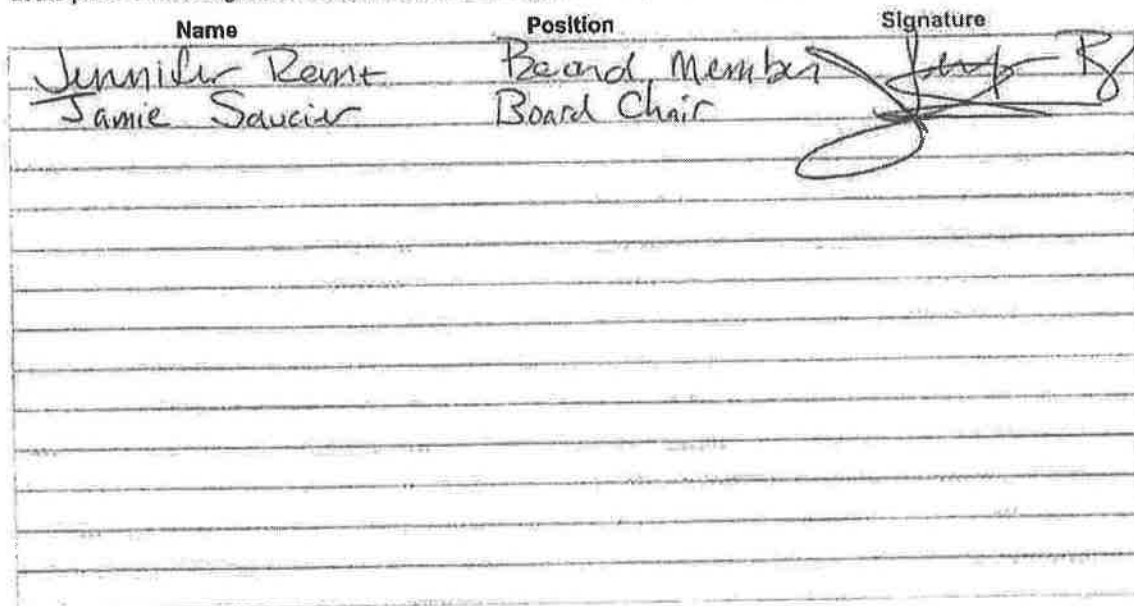 Name Position Signature
Jennifer Board Member
Jamie Saucier Board Chair